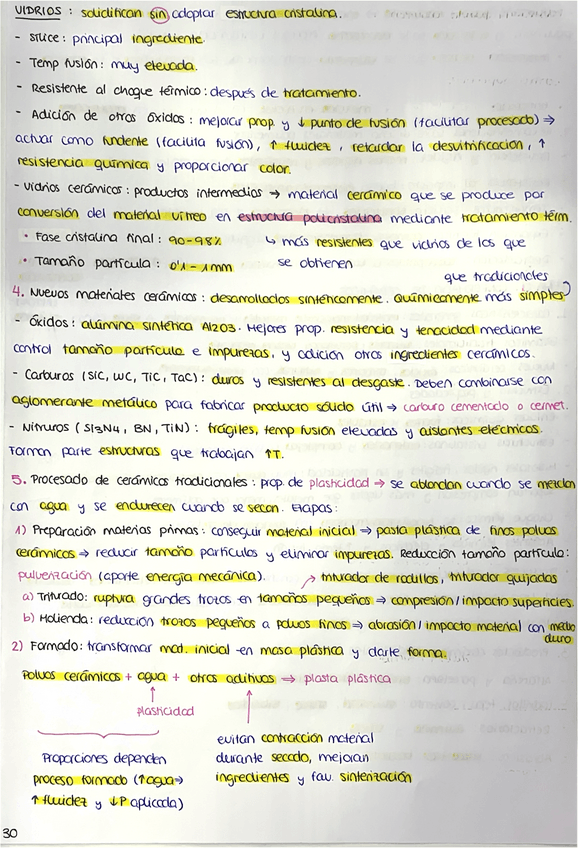 VIDRIOS : solidifican sin adoptar estructura cristalina.
- Sílice : principal ingrediente.
- Temp fusión : muy elevada.
- Resistente al choque térmico : después de tratamiento.
- Adición de otros óxidos : mejorar prop. y ↓ punto de fusión (facilitar procesado) ⇒
actuar como fundente (facilita fusión), ↑ fluidez, retardar la desvitrificación, ↑
resistencia química y proporcionar color.
- Vidrios cerámicos : productos intermedios → material cerámico que se produce por
conversión del material vítreo en estructura policristalina mediante tratamiento térm.
• Fase cristalina final : 90-98% ↳ más resistentes que vidrios de los que
• Tamaño partícula : 0'1 - 1mm se obtienen
que tradicionales
4. Nuevos materiales cerámicos : desarrollados sintéticamente. Químicamente más simples
- Óxidos : alúmina sintética Al2O3. Mejores prop. resistencia y tenacidad mediante
control tamaño partícula e impurezas, y adición otros ingredientes cerámicos.
- Carburos (SiC, WC, TiC, TaC) : duros y resistentes al desgaste. Deben combinarse con
aglomerante metálico para fabricar producto sólido útil → carburo cementado o cermet.
- Nitruros (Si3N4, BN, TiN) : frágiles, temp fusión elevadas y aislantes eléctricos.
Forman parte estructuras que trabajan ↑T.
5. Procesado de cerámicos tradicionales : prop. de plasticidad → se ablandan cuando se mezclan
con agua y se endurecen cuando se secan. Etapas :
1) Preparación materias primas : conseguir material inicial → pasta plástica de finos polvos
cerámicos → reducir tamaño partículas y eliminar impurezas. Reducción tamaño partícula :
pulverización (aporte energía mecánica). → triturador de rodillos, triturador quijadas
a) Triturado : ruptura grandes trozos en tamaños pequeños ⇒ compresión/impacto superficies.
b) Molienda : reducción trozos pequeños a polvos finos ⇒ abrasión/impacto material con medio
duro
2) Formado : transformar mat. inicial en masa plástica y darle forma.
Polvos cerámicos + agua + otros aditivos ⇒ plasta plástica
plasticidad
evitan contracción material
Proporciones dependen durante secado, mejoran
proceso formado (↑agua⇒ ingredientes y fav. sinterización
↑ fluidez y ↓P aplicada)
30